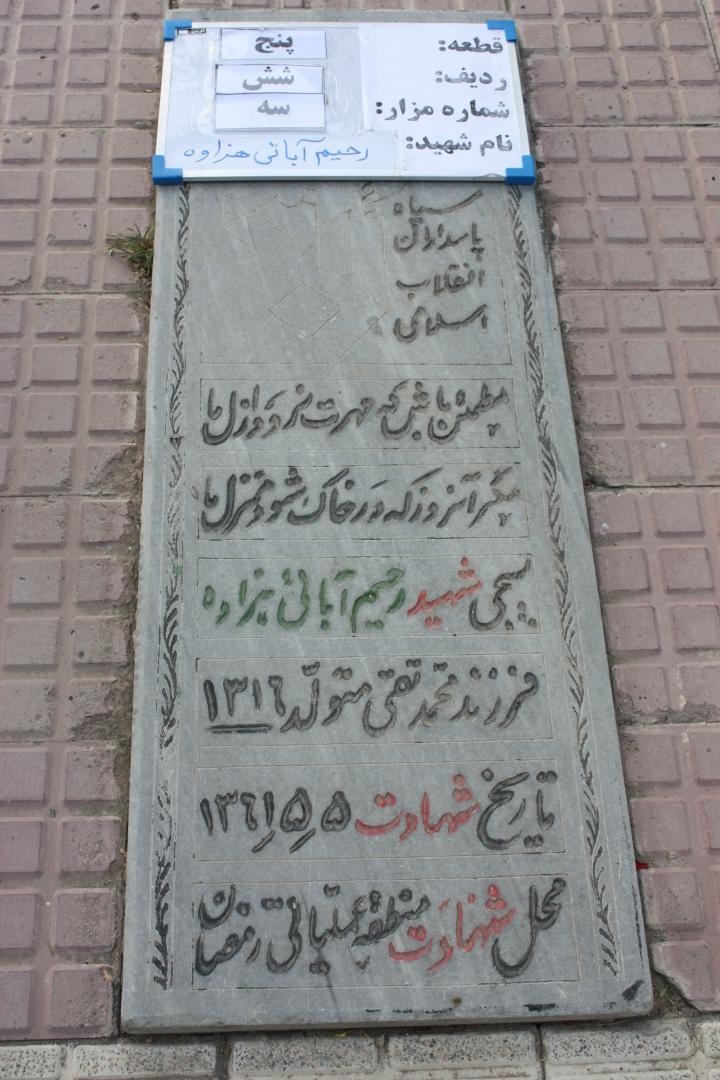 قطعه: پنج
ردیف: شش
شماره مزار: سه
نام شهید: رحیم آبائی هزاوه
سپاه
پاسداران
انقلاب
اسلامی
مطمئن باش که مهرت نرود از دل ما
مگر آنروز که در خاک شود منزل ما
بسیجی شهید رحیم آبائی هزاوه
فرزند محمد تقی متولّد ۱۳۱۶
تاریخ شهادت ۵ ر۵ ر۱۳۶۱
محل شهادت منطقه عملیاتی رمضان